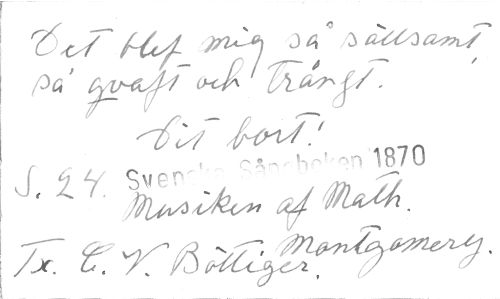 Det blef mig så sällsamt,
så qvaft och trångt.
Dit bort!
S. 24. Svenska Sångboken 1870
Musiken af Math.
Montgomery.
Tx. C. V. Böttiger.